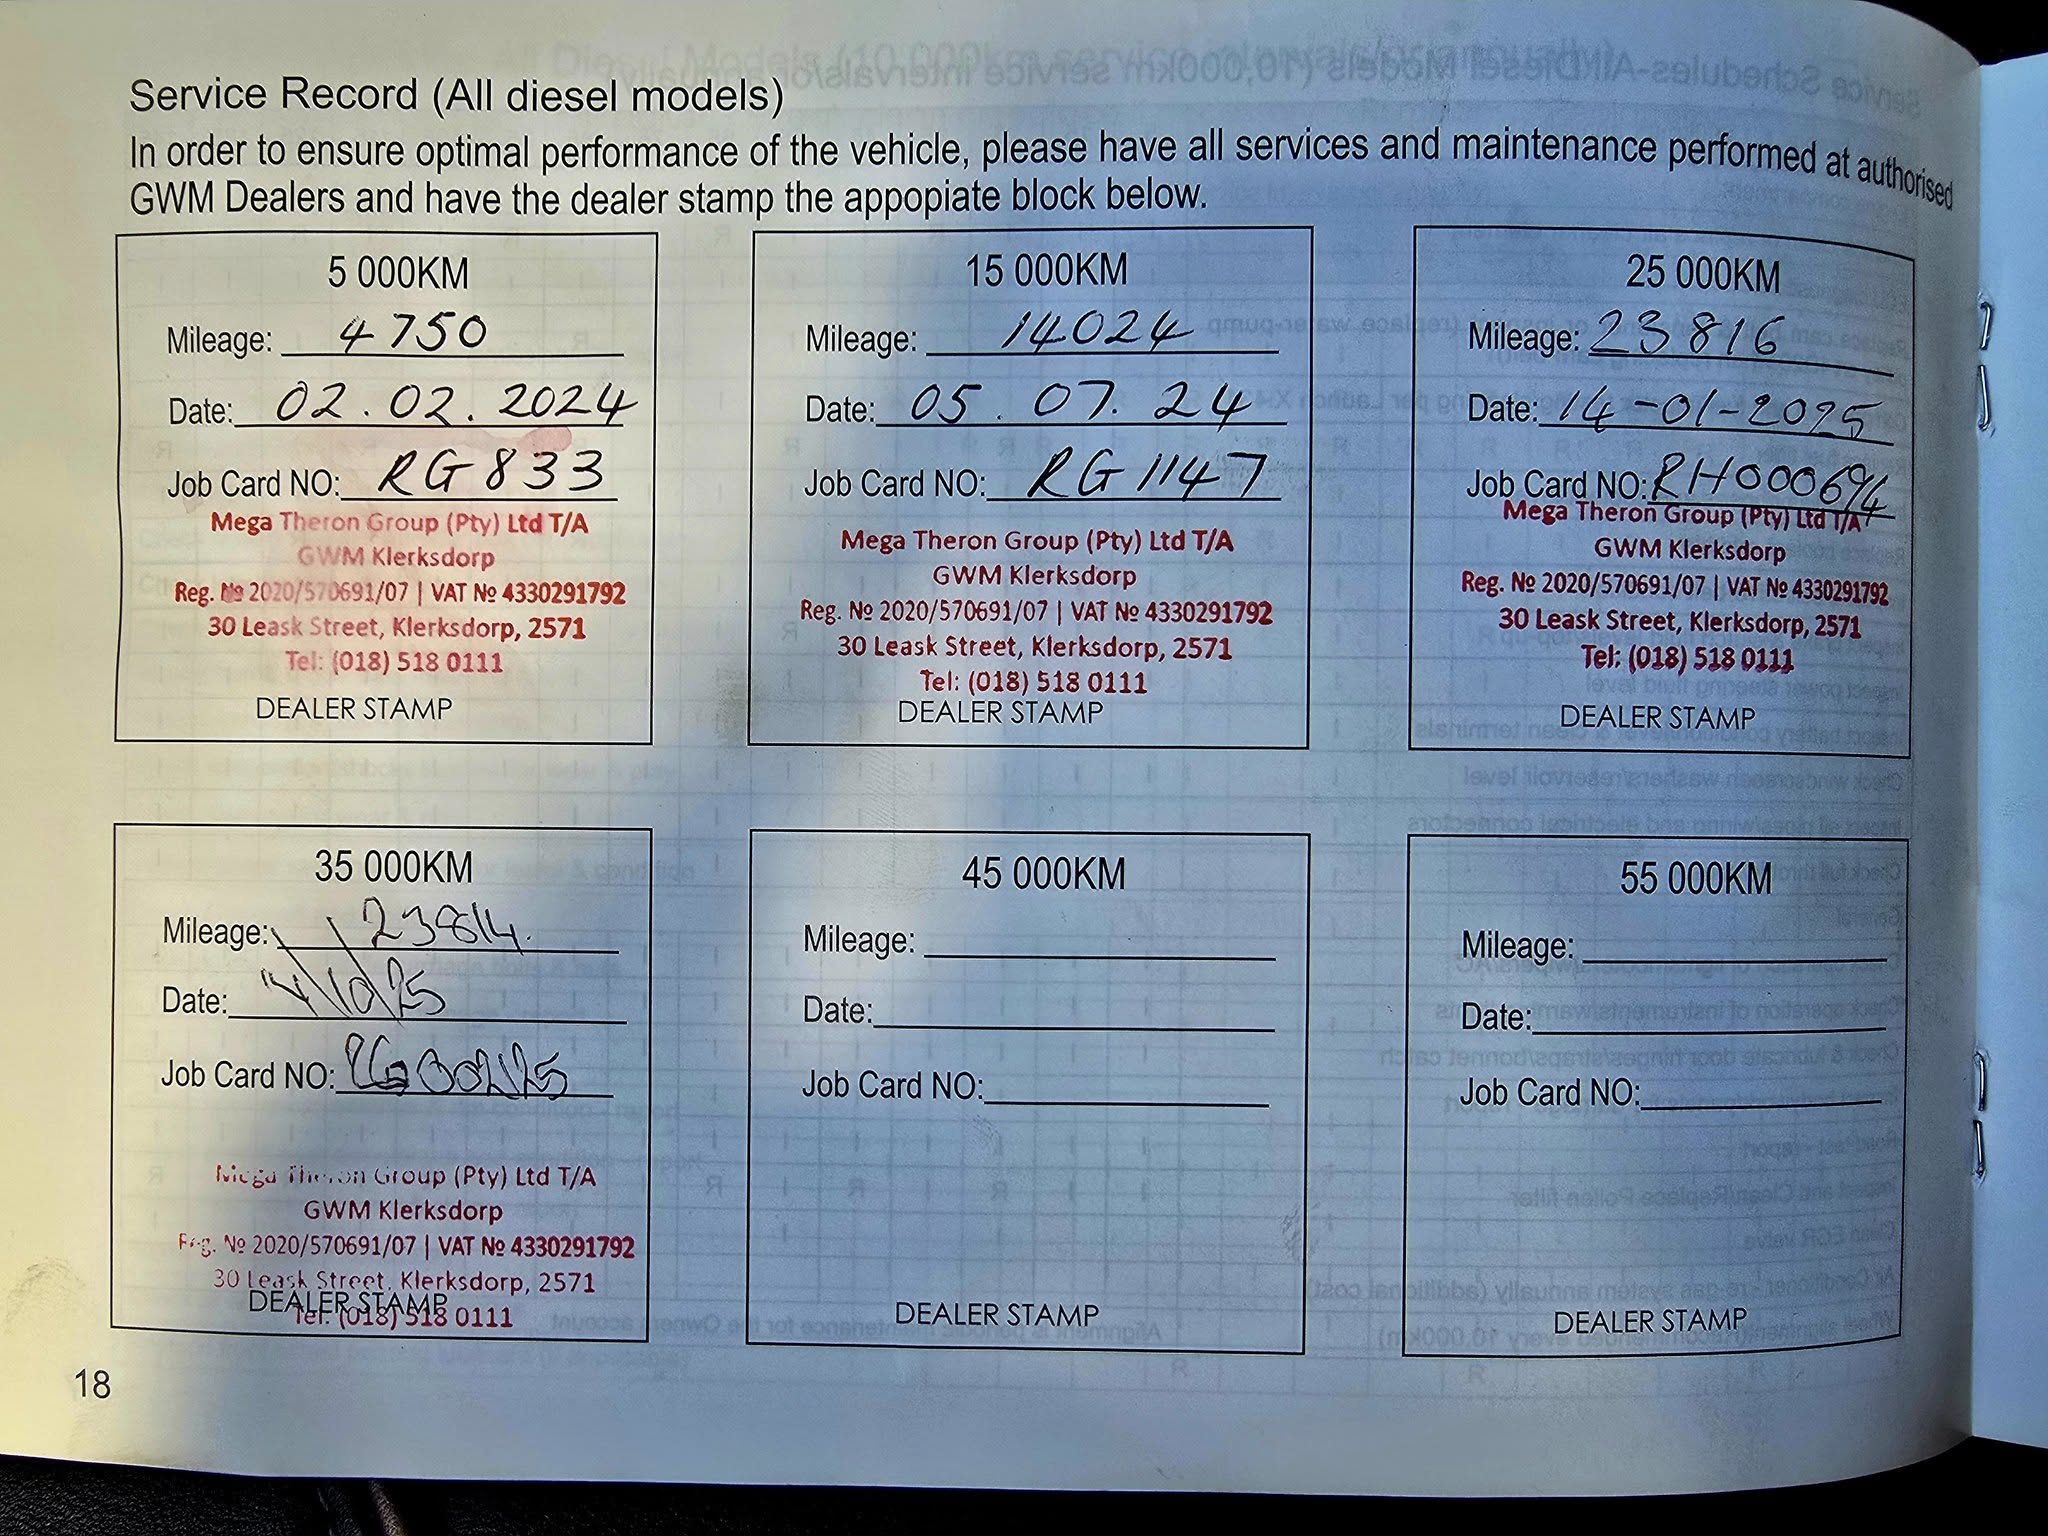 Service Record (All diesel models)
In order to ensure optimal performance of the vehicle, please have all services and maintenance performed at authorised
GWM Dealers and have the dealer stamp the appopiate block below.
5 000KM
Mileage: 4750
Date: 02.02.2024
Job Card NO: RG833
Mega Theron Group (Pty) Ltd T/A
GWM Klerksdorp
Reg. № 2020/570691/07 | VAT № 4330291792
30 Leask Street, Klerksdorp, 2571
Tel: (018) 518 0111
DEALER STAMP
15 000KM
Mileage: 14024
Date: 05.07.24
Job Card NO: RG1147
Mega Theron Group (Pty) Ltd T/A
GWM Klerksdorp
Reg. № 2020/570691/07 | VAT № 4330291792
30 Leask Street, Klerksdorp, 2571
Tel: (018) 518 0111
DEALER STAMP
25 000KM
Mileage: 23816
Date: 14-01-2025
Job Card NO: RH000694
Mega Theron Group (Pty) Ltd T/A
GWM Klerksdorp
Reg. № 2020/570691/07 | VAT № 4330291792
30 Leask Street, Klerksdorp, 2571
Tel: (018) 518 0111
DEALER STAMP
35 000KM
Mileage: 23814
Date:
Job Card NO:
Mega Theron Group (Pty) Ltd T/A
GWM Klerksdorp
Reg. № 2020/570691/07 | VAT № 4330291792
30 Leask Street, Klerksdorp, 2571
DEALER STAMP
Tel: (018) 518 0111
45 000KM
Mileage:
Date:
Job Card NO:
DEALER STAMP
55 000KM
Mileage:
Date:
Job Card NO:
DEALER STAMP
18